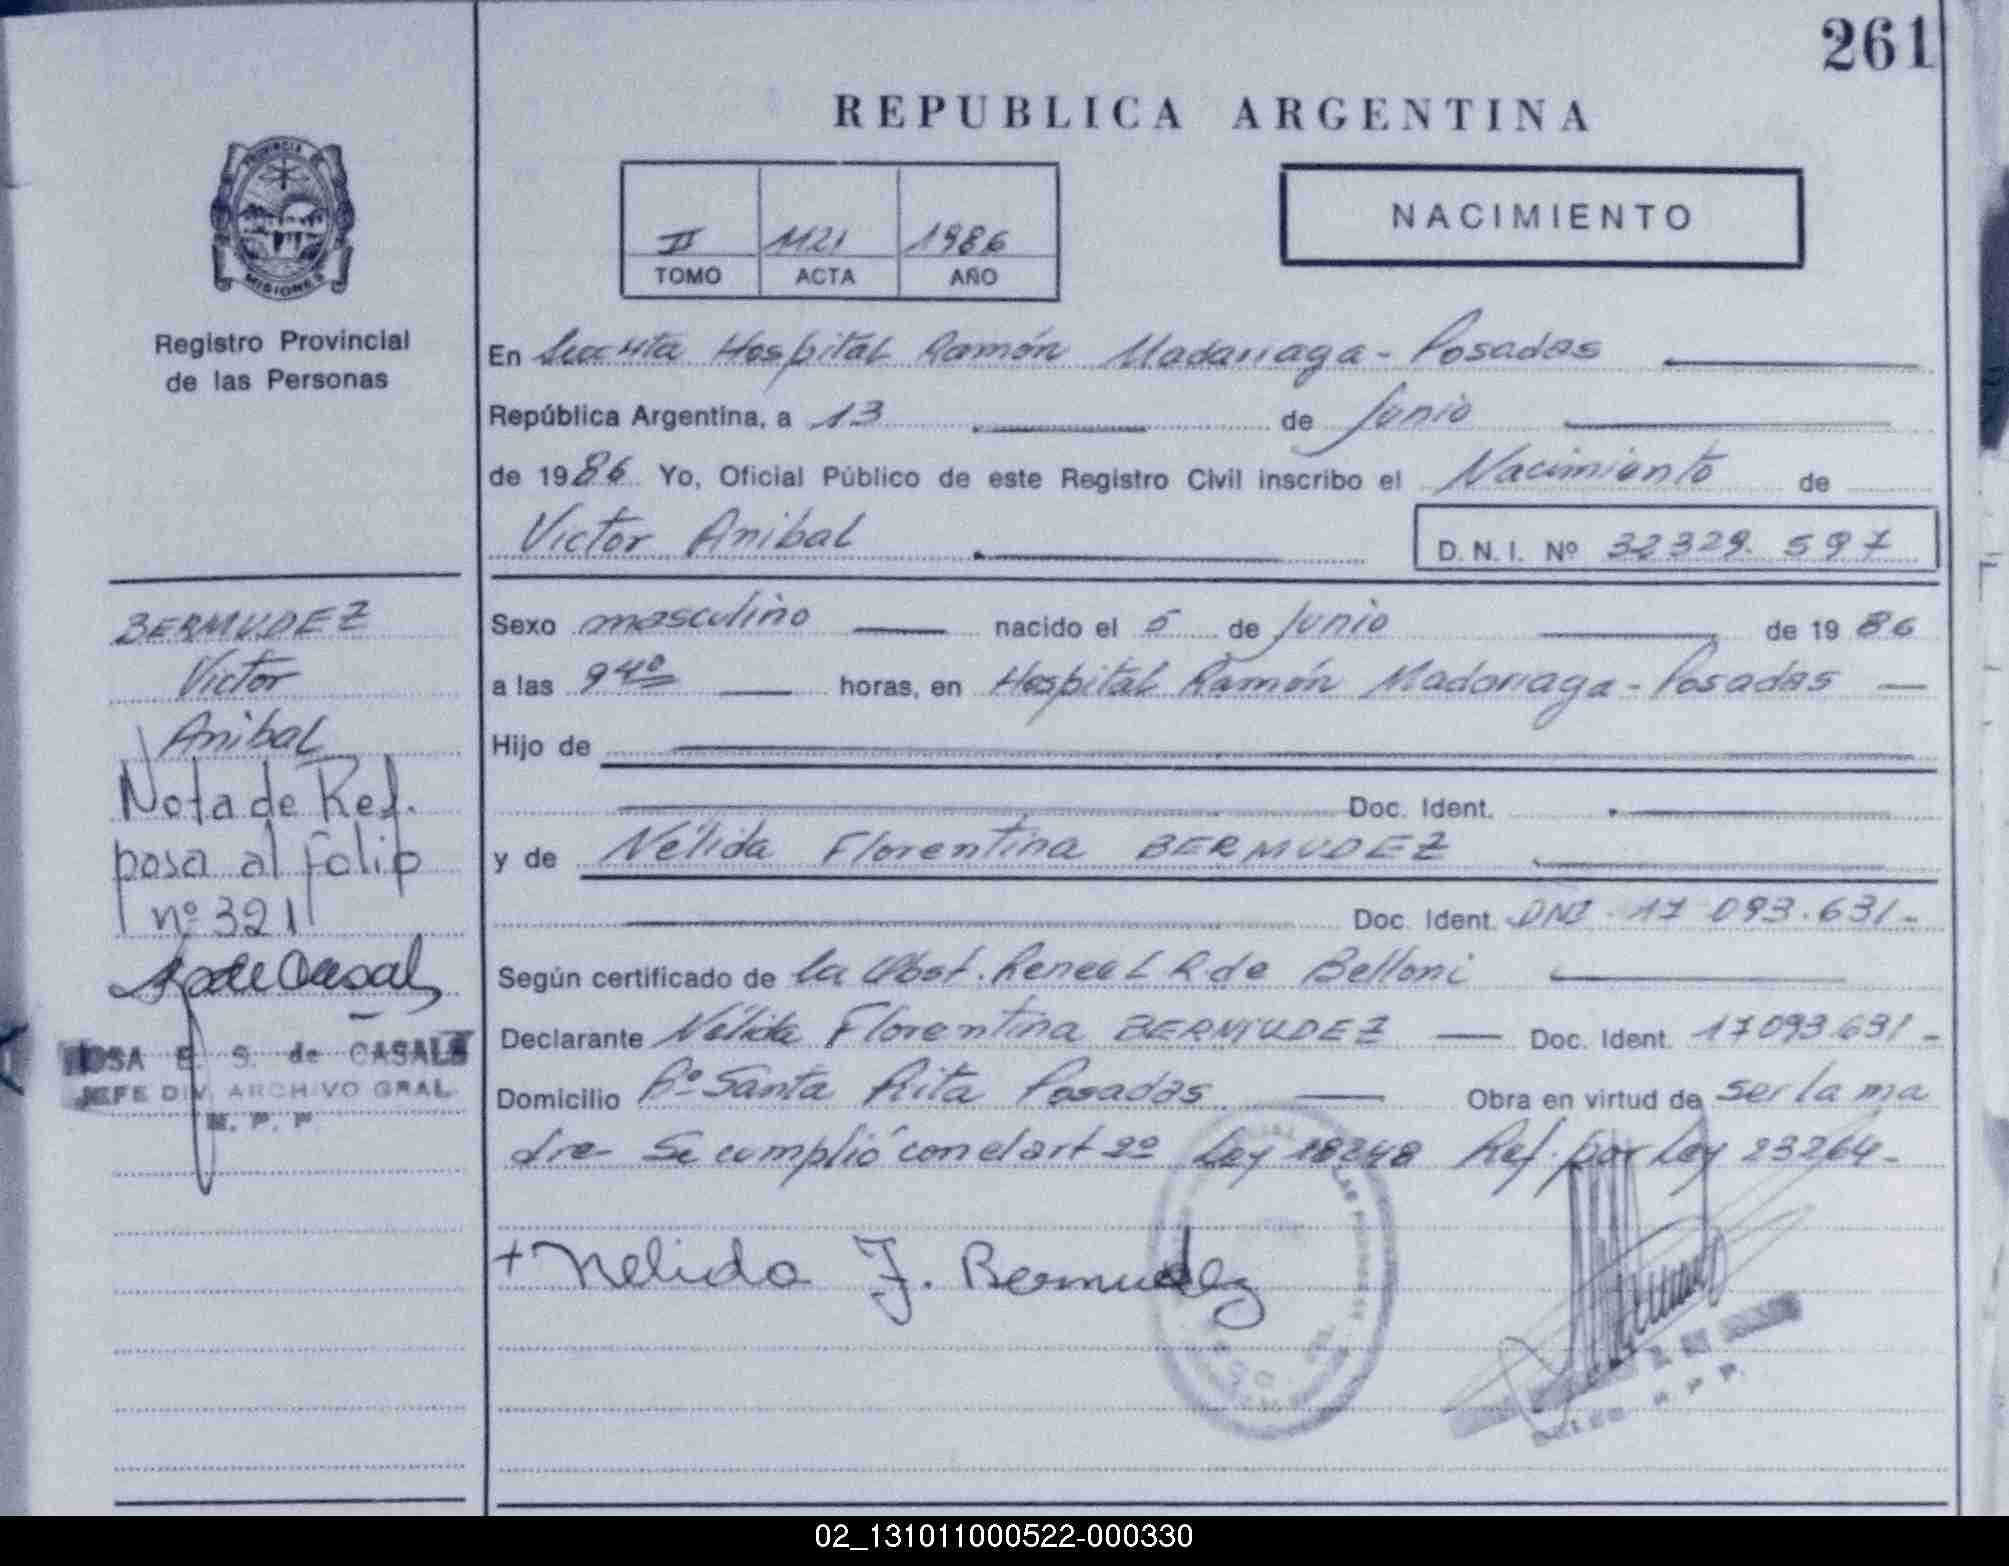 261
REPUBLICA ARGENTINA
PROVINCIA DE
MISIONES
Registro Provincial
de las Personas
II 1121 1986
TOMO ACTA AÑO
NACIMIENTO
En Hospital Ramón Madariaga - Posadas
República Argentina, a 13 de Junio
de 1986 Yo, Oficial Público de este Registro Civil inscribo el Nacimiento de
Victor Anibal
D.N.I. Nº 32329.597
BERMUDEZ
Victor
Anibal
Nota de Ref.
pasa al folio
nº 321
de Casal
OSA E. S. de CASALS
JEFE DIV. ARCHIVO GRAL.
R. P. P.
Sexo masculino nacido el 5 de Junio de 1986
a las 9 40 horas, en Hospital Ramón Madariaga - Posadas
Hijo de
Doc. Ident.
y de Nélida Florentina BERMUDEZ
Doc. Ident. DNI 17 093.631-
Según certificado de la Obst. Renee L R de Belloni
Declarante Nélida Florentina BERMUDEZ Doc. Ident. 17093.631-
Domicilio Bº Santa Rita Posadas Obra en virtud de ser la ma
dre Se cumplió con el art 2º Ley 18248 Ref. por Ley 23264-
+ Nelida F. Bermudez
R. P. P.
02_131011000522-000330